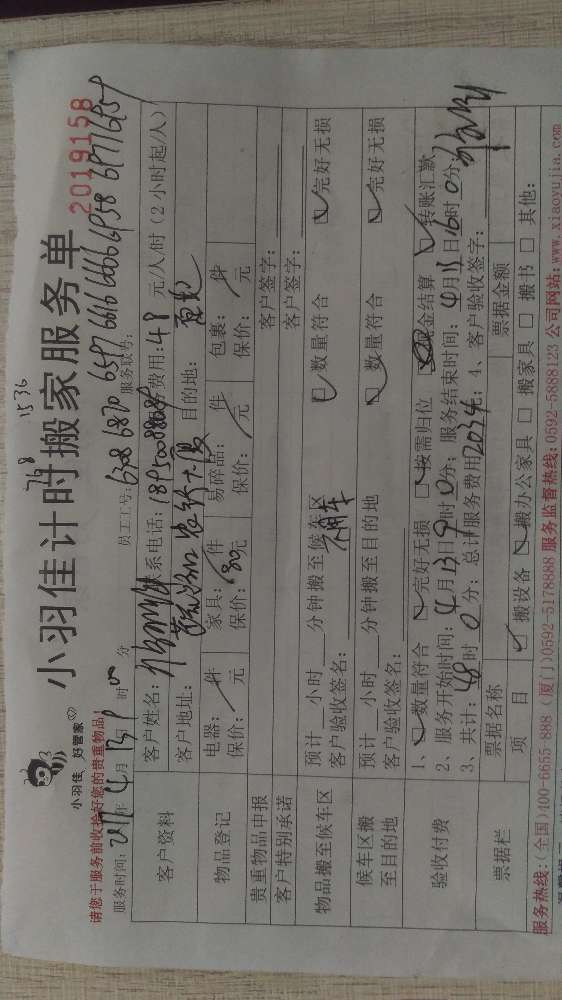 小羽佳计时搬家服务单
2019158
小羽佳 好管家
请您于服务前收拾好您的贵重物品!
服务时间: 年 4 月 13 日 9 时 00 分 员工工号: 6308 6820 6597 6616 6666 6958 6977 6959
客户资料
客户姓名: 联系电话: 服务费用: 48 元/人/时 (2小时起/人)
客户地址: 目的地:
物品登记
电器: 件 家具: 件 易碎品: 件 包裹: 件
保价: 元 保价: 元 保价: 元 保价: 元
贵重物品申报 客户签字:
客户特别承诺 客户签字:
物品搬至候车区
预计 小时 分钟搬至候车区 数量符合 完好无损
客户验收签名:
候车区搬至目的地
预计 小时 分钟搬至目的地 数量符合 完好无损
客户验收签名:
验收付费
1、 数量符合 完好无损 按需归位 现金结算 转账汇款
2、服务开始时间: 4 月 13 日 9 时 0 分; 服务结束时间: 4 月 日 16 时 0 分;
3、共计: 48 时 0 分; 总计服务费用 2034 元; 4、客户验收签字:
票据栏
票据名称 票据金额
项 目 搬设备 搬办公家具 搬家具 搬书 其他:
服务热线:(全国)400-6655 888 (厦门)0592-5178888 服务监督热线: 0592-5888123 公司网站: www.xiaoyujia.com